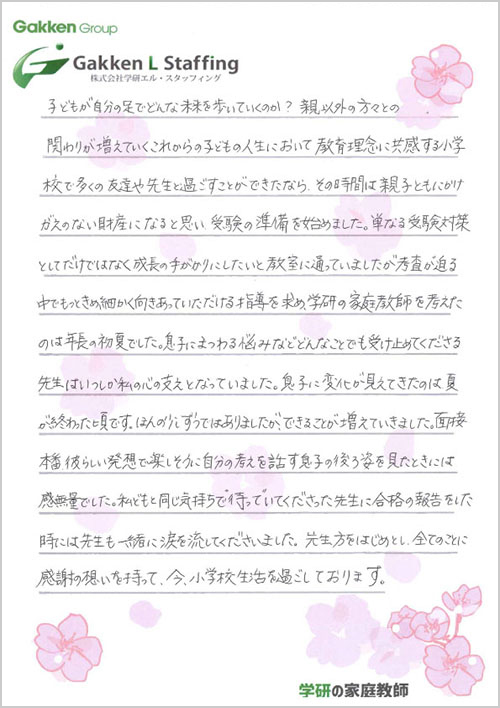 Gakken Group
Gakken L Staffing
株式会社学研エル・スタッフィング
子どもが自分の足でどんな未来を歩いていくのか? 親以外の方々との
関わりが増えていくこれからの子どもの人生において 教育理念に共感する小学
校で多くの友達や先生と過ごすことができたなら、その時間は親子ともにかけ
がえのない財産になると思い 受験の準備を始めました。単なる受験対策
としてだけではなく成長の手がかりにしたいと教室に通っていましたが考査が迫る
中でもっときめ細かく向きあっていただける指導を求め、学研の家庭教師を考えた
のは年長の初夏でした。息子にまつわる悩みなどどんなことでも受け止めてくださる
先生はいつしか私の心の支えとなっていました。息子に変化が見えてきたのは夏
が終わった頃です。ほんの少しずつではありましたが、できることが増えていきました。面接
本番 彼らしい発想で楽しそうに自分の考えを話す息子の後ろ姿を見たときには
感無量でした。私どもと同じ気持ちで待っていてくださった先生に合格の報告をした
時には先生も一緒に涙を流してくださいました。先生方をはじめとし、全てのことに
感謝の想いを持って、今、小学校生活を過ごしております。
学研の家庭教師